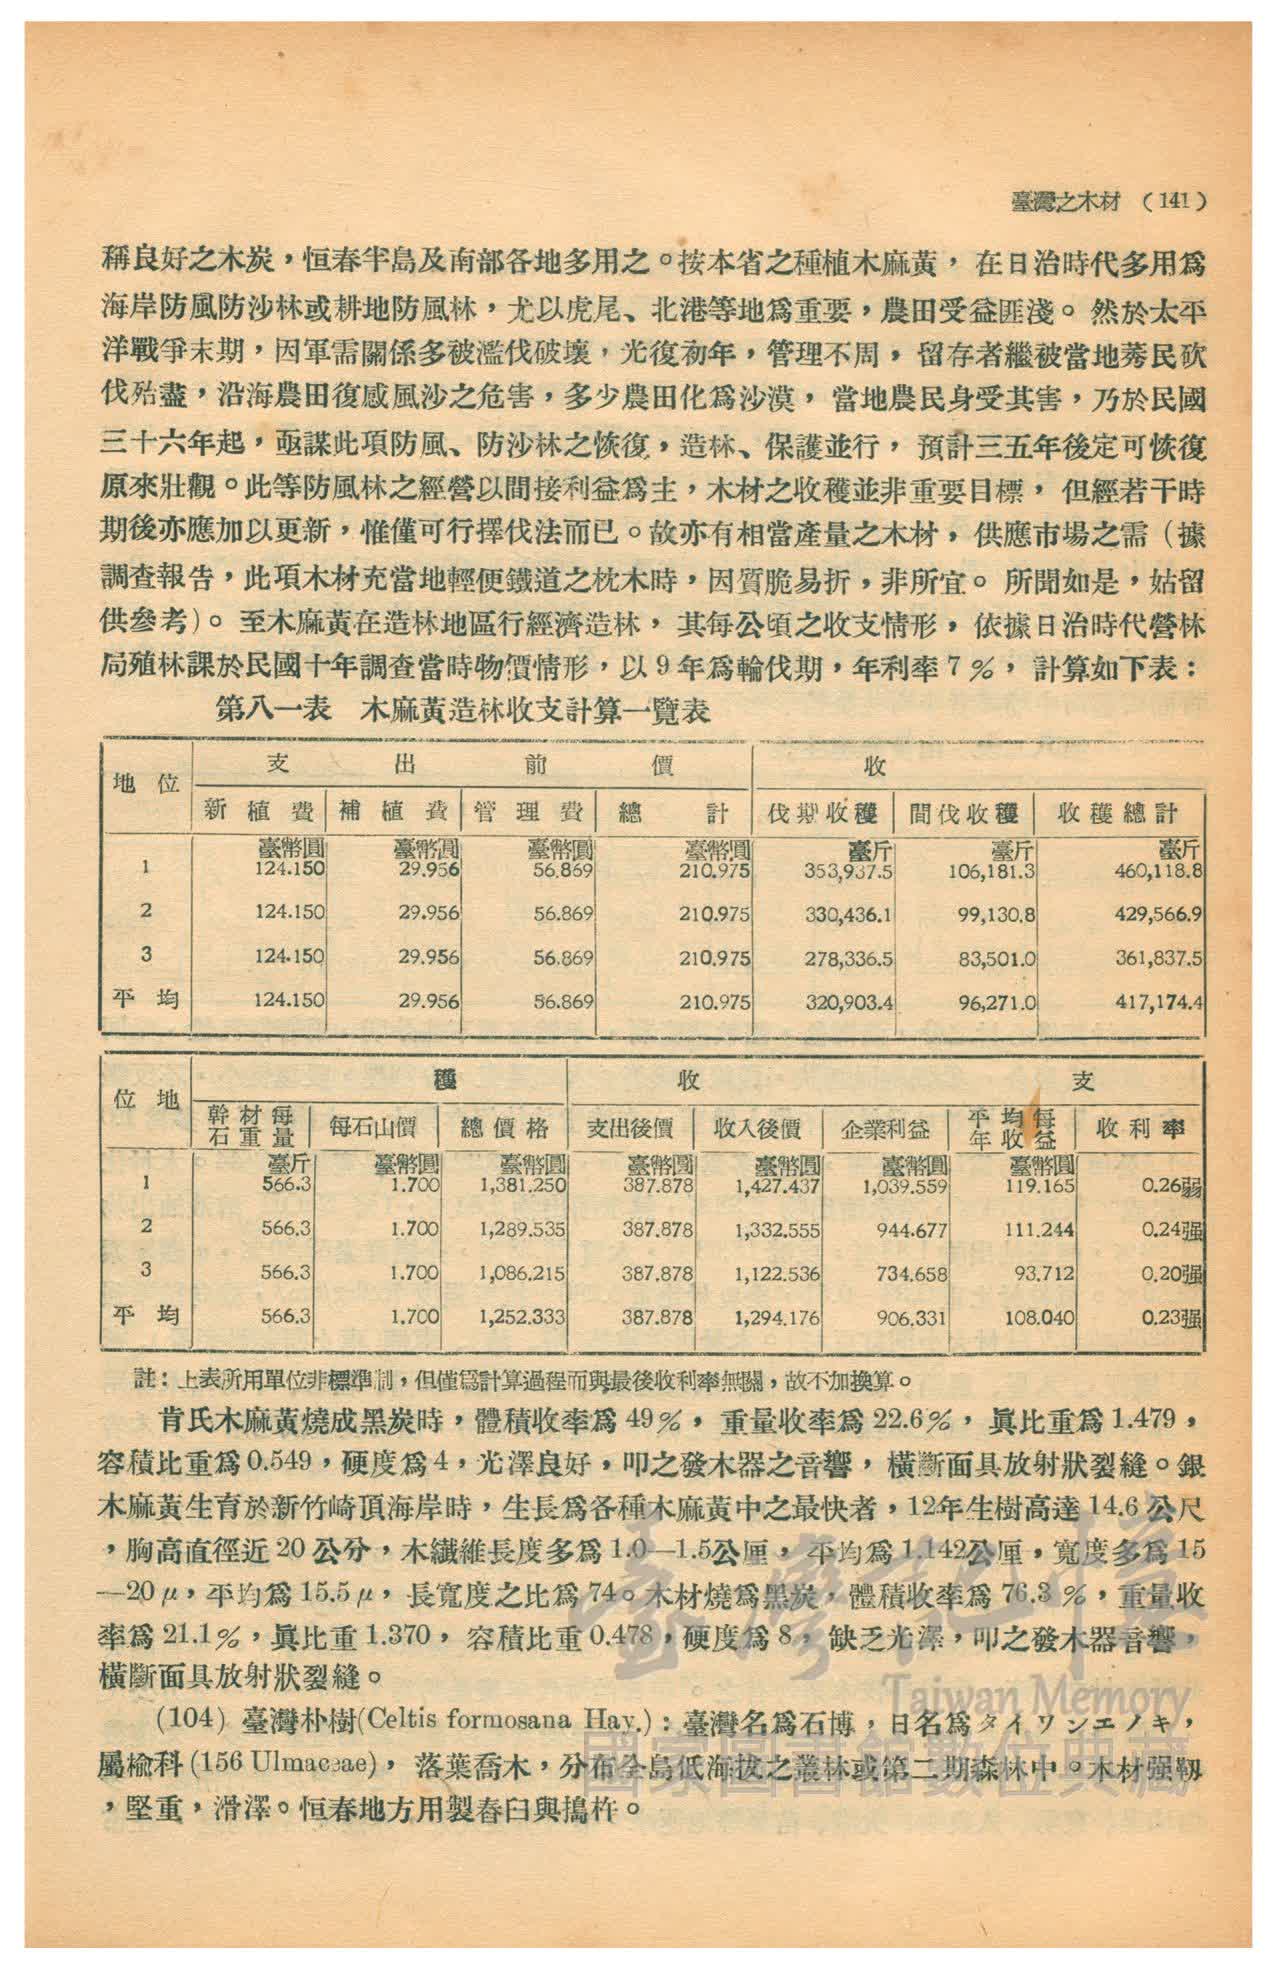 臺灣之木材 (141)
稱良好之木炭，恒春半島及南部各地多用之。按本省之種植木麻黃，在日治時代多用爲
海岸防風防沙林或耕地防風林，尤以虎尾、北港等地爲重要，農田受益匪淺。然於太平
洋戰爭末期，因軍需關係多被濫伐破壞，光復初年，管理不周，留存者繼被當地莠民砍
伐殆盡，沿海農田復感風沙之危害，多少農田化爲沙漠，當地農民身受其害，乃於民國
三十六年起，亟謀此項防風、防沙林之恢復，造林、保護並行，預計三五年後定可恢復
原來壯觀。此等防風林之經營以間接利益爲主，木材之收穫並非重要目標，但經若干時
期後亦應加以更新，惟僅可行擇伐法而已。故亦有相當產量之木材，供應市場之需（據
調查報告，此項木材充當地輕便鐵道之枕木時，因質脆易折，非所宜。所聞如是，姑留
供參考）。至木麻黃在造林地區行經濟造林，其每公頃之收支情形，依據日治時代營林
局殖林課於民國十年調查當時物價情形，以9年爲輪伐期，年利率7％，計算如下表：
第八一表 木麻黃造林收支計算一覽表
地位 支出前價 收
新植費 補植費 管理費 總計 伐期收穫 間伐收穫 收穫總計
臺幣圓 臺幣圓 臺幣圓 臺幣圓 臺斤 臺斤 臺斤
1 124.150 29.956 56.869 210.975 353,937.5 106,181.3 460,118.8
2 124.150 29.956 56.869 210.975 330,436.1 99,130.8 429,566.9
3 124.150 29.956 56.869 210.975 278,336.5 83,501.0 361,837.5
平均 124.150 29.956 56.869 210.975 320,903.4 96,271.0 417,174.4
位地 穫 收 支
幹材每石重量 每石山價 總價格 支出後價 收入後價 企業利益 平均每年收益 收利率
臺斤 臺幣圓 臺幣圓 臺幣圓 臺幣圓 臺幣圓 臺幣圓
1 566.3 1.700 1,381.250 387.878 1,427.437 1,039.559 119.165 0.26弱
2 566.3 1.700 1,289.535 387.878 1,332.555 944.677 111.244 0.24强
3 566.3 1.700 1,086.215 387.878 1,122.536 734.658 93.712 0.20强
平均 566.3 1.700 1,252.333 387.878 1,294.176 906.331 108.040 0.23强
註：上表所用單位非標準制，但僅爲計算過程而與最後收利率無關，故不加換算。
肯氏木麻黃燒成黑炭時，體積收率爲49％，重量收率爲22.6％，眞比重爲1.479，
容積比重爲0.549，硬度爲4，光澤良好，叩之發木器之音響，橫斷面具放射狀裂縫。銀
木麻黃生育於新竹崎頂海岸時，生長爲各種木麻黃中之最快者，12年生樹高達14.6公尺
，胸高直徑近20公分，木纖維長度多爲1.0—1.5公厘，平均爲1.142公厘，寬度多爲15
—20μ，平均爲15.5μ，長寬度之比爲74。木材燒爲黑炭，體積收率爲76.3％，重量收
率爲21.1％，眞比重1.370，容積比重0.478，硬度爲8，缺乏光澤，叩之發木器音響，
橫斷面具放射狀裂縫。
(104) 臺灣朴樹(Celtis formosana Hay.)：臺灣名爲石博，日名爲タイワンエノキ，
屬榆科(156 Ulmaceae)，落葉喬木，分布全島低海拔之叢林或第二期森林中。木材强韌
，堅重，滑澤。恒春地方用製舂臼與搗杵。
臺灣記憶
Taiwan Memory
國家圖書館數位典藏